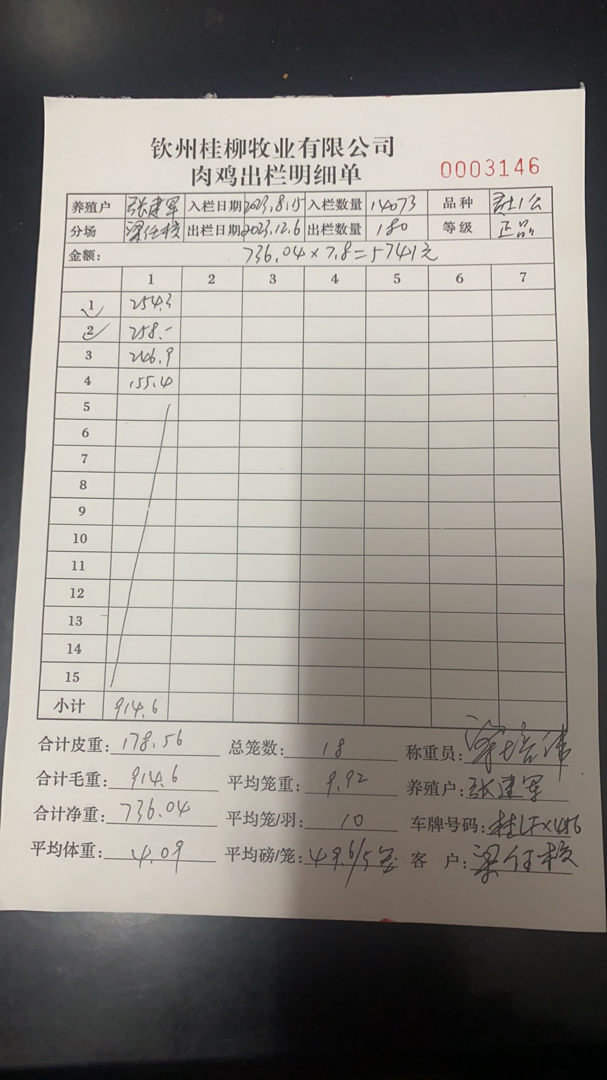 钦州桂柳牧业有限公司
肉鸡出栏明细单 0003146
养殖户 张建军 入栏日期 2023.8.15 入栏数量 14073 品种
分场 出栏日期 2023.12.6 出栏数量 180 等级 正品
金额: 736.04×7.8=5741元
1 2 3 4 5 6 7
1 254.3
2 258.-
3 246.9
4 155.4
5
6
7
8
9
10
11
12
13
14
15
小计 914.6
合计皮重: 178.56 总笼数: 18 称重员:
合计毛重: 914.6 平均笼重: 9.92 养殖户: 张建军
合计净重: 736.04 平均笼/羽: 10 车牌号码:
平均体重: 4.09 平均磅/笼: 49.6/5 客 户: